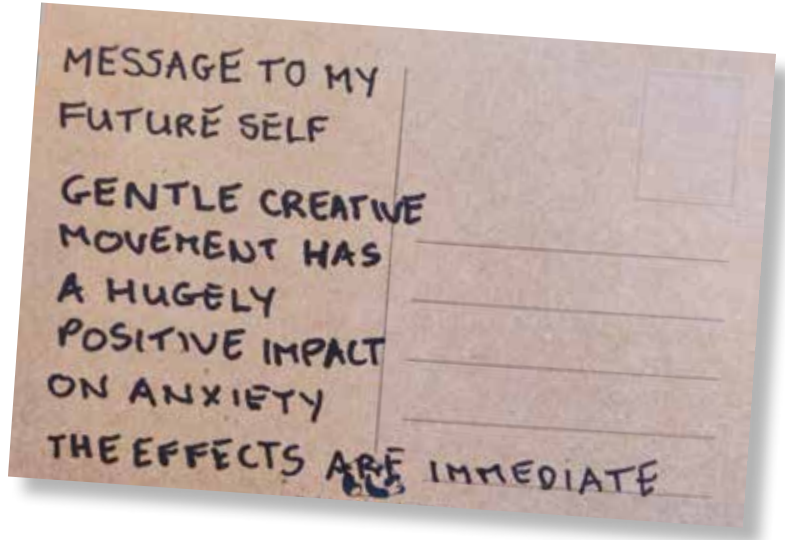 MESSAGE TO MY
FUTURE SELF
GENTLE CREATIVE
MOVEMENT HAS
A HUGELY
POSITIVE IMPACT
ON ANXIETY
THE EFFECTS ARE IMMEDIATE